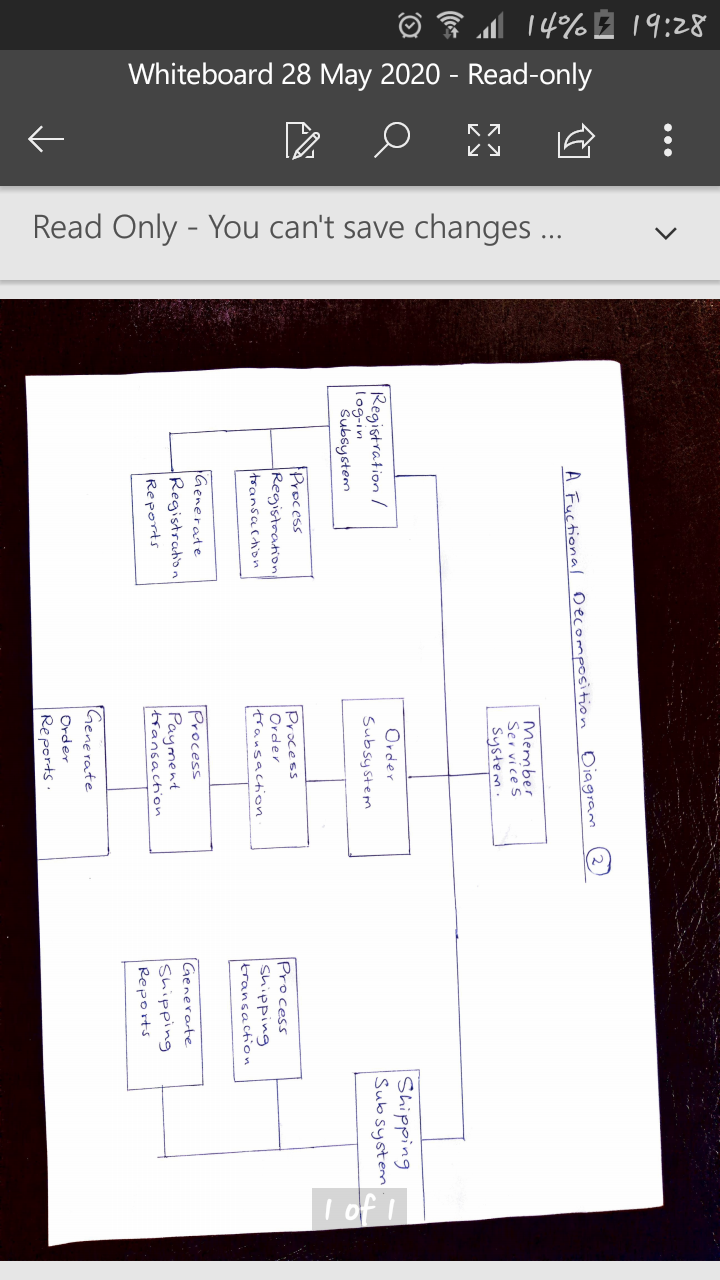 14% 19:28
Whiteboard 28 May 2020 - Read-only
Read Only - You can't save changes ...
A Fuctional Decomposition Diagram 2
Member
Services
System.
Registration /
log-in
Subsystem
Process
Registration
transaction
Generate
Registration
Reports
Order
Subsystem
Process
Order
transaction.
Process
Payment
transaction
Generate
Order
Reports.
Shipping
Subsystem.
Process
Shipping
transaction
Generate
Shipping
Reports
1 of 1